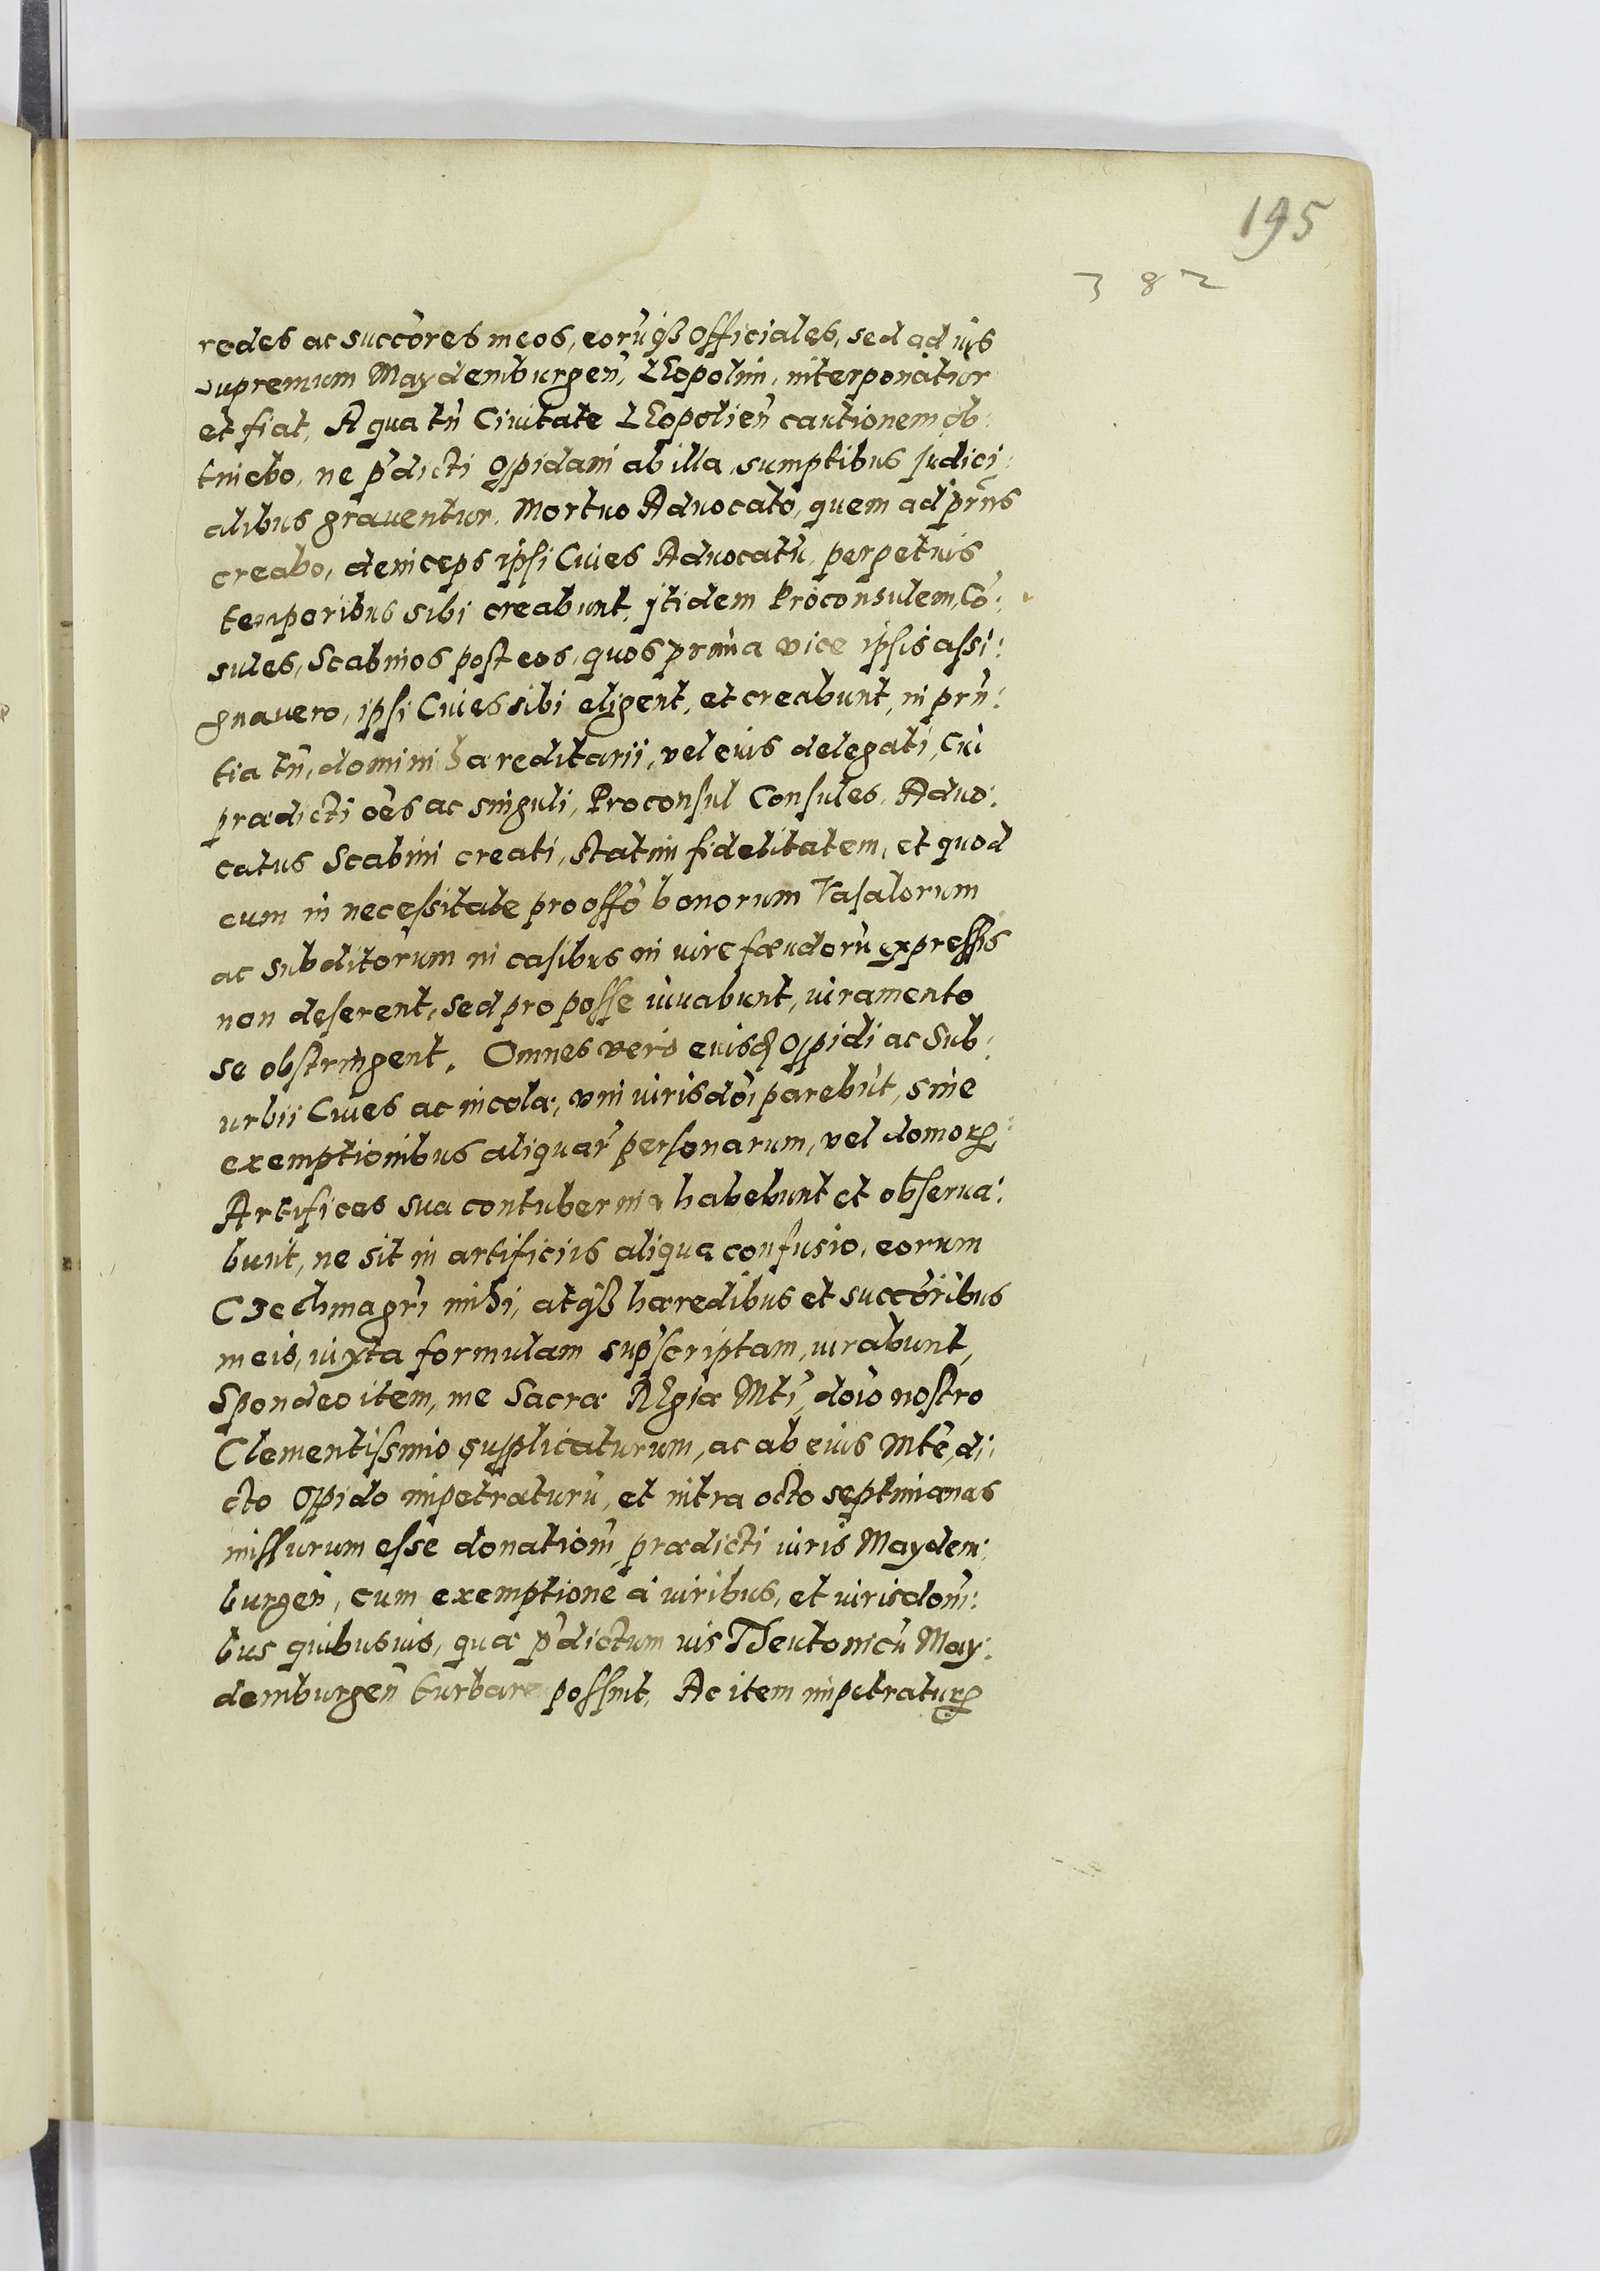 195
382
redes ac succ͂ores meos, eorũq́ꝫ Officiales, sed ad ius
supremum Maydemburgeñ, LEopolim, interponatur
et fiat, A qua tñ Ciuitate LEopolieñ cautionem ob:
tinebo, ne p̃dicti Opidani ab illa, sumptibus Judici:
alibus grauentur. Mortuo Aduocato, quem ad prñs
creabo, deinceps ipsi Ciues Aduocatũ, perpetuis
temporibus sibi creabunt, jtidem Proconsulem, Cõ:
sules, Scabinos post eos, quos prima vice ipsis assi:
gnauero, ipsi Ciues sibi eligent, et creabunt, in prñ:
tia tñ, domini hæreditarii, vel eius delegati, Cui
prædicti oẽs ac singuli, Proconsul Consules, Aduo:
catus Scabini creati, statim fidelitatem, et quod
eum in necessitate pro offõ bonorum Vasalorum
ac Subditorum in casibus in iure fæudorũ expressis
non deserent, sed pro posse iuuabunt, iuramento
se obstringent. Omnes vero eiusd Opidi ac Sub:
urbii Ciues ac incolæ, vni iurisdõi parebũt, sine
exemptionibus aliquar̃ personarum, vel domoꝝ:
Artifices sua contubernia habebunt et obserua:
bunt, ne sit in artificiis aliqua confusio, eorum
Czechmagr̃i mihi, atq́ꝫ hæredibus et succ͂oribus
meis, iuxta formulam sup̃scriptam, iurabunt,
Spondeo item, me Sacræ REgiæ Mti, dõio nostro
Clementissimo supplicaturum, ac ab eius Mte, di:
cto Opido impetraturũ, et intra octo septimanas
missurum esse donationẽ, prædicti iuris Maydem:
burgeñ, cum exemptione à iuribus, et iurisdoni:
bus quibusuis, quæ p̃dictum ius Theutonicũ May:
demburgeñ turbare possint, Ac item impetraturꝝ